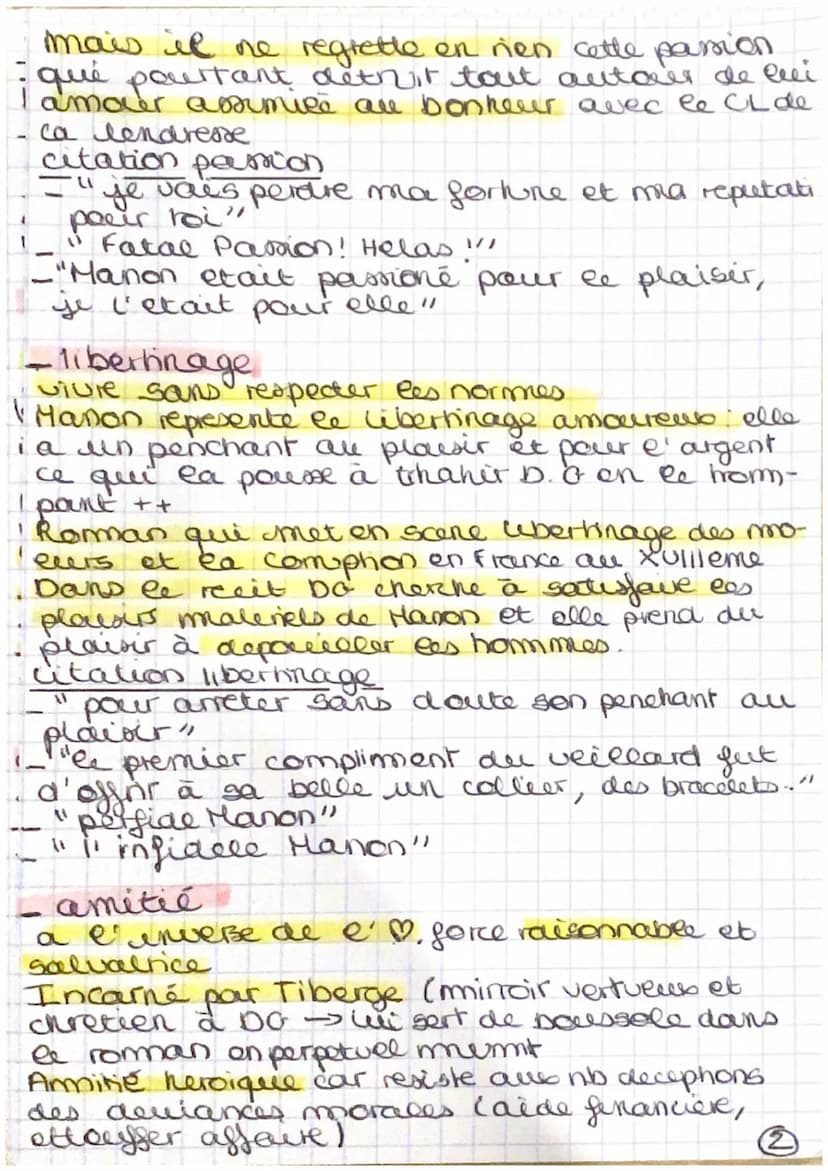 mais il ne regrette en rien cette passion
qui pourtant detruit tout autour de lui
amour assimilé au bonheur avec le CL de
ca tendresse
citation passion
- "je vais perdre ma fortune et ma reputati
pour toi"
- "Fatal Passion! Helas!"
- "Manon etait passioné pour le plaisir,
je l'etait pour elle"
- libertinage
vivre sans respecter les normes
Manon represente le libertinage amoureux : elle
a un penchant au plaisir et pour l'argent
ce qui la pousse à trhahir D.G en le trom-
pant ++
Roman qui met en scene libertinage des mo-
eurs et la corruption en France au XVIIIeme
Dans le recit DG cherche à satisfaire les
plaisirs materiels de Manon et elle prend du
plaisir à depouiller les hommes.
citation libertinage
- "pour arreter sans doute son penchant au
plaisir"
- "le premier compliment du veillard fut
d'offrir à sa belle un collier, des bracelets.."
- "perfide Manon"
- "l'infidele Manon"
- amitié
a l'inverse de l'♡, force raisonnable et
salvatrice
Incarné par Tiberge (miroir vertueux et
chretien à DG → lui sert de boussole dans
le roman en perpetuel mvmt
Amitié heroique car resiste aux nb deceptions
des deviances morales (aide financière,
ettouffer affaire)
2